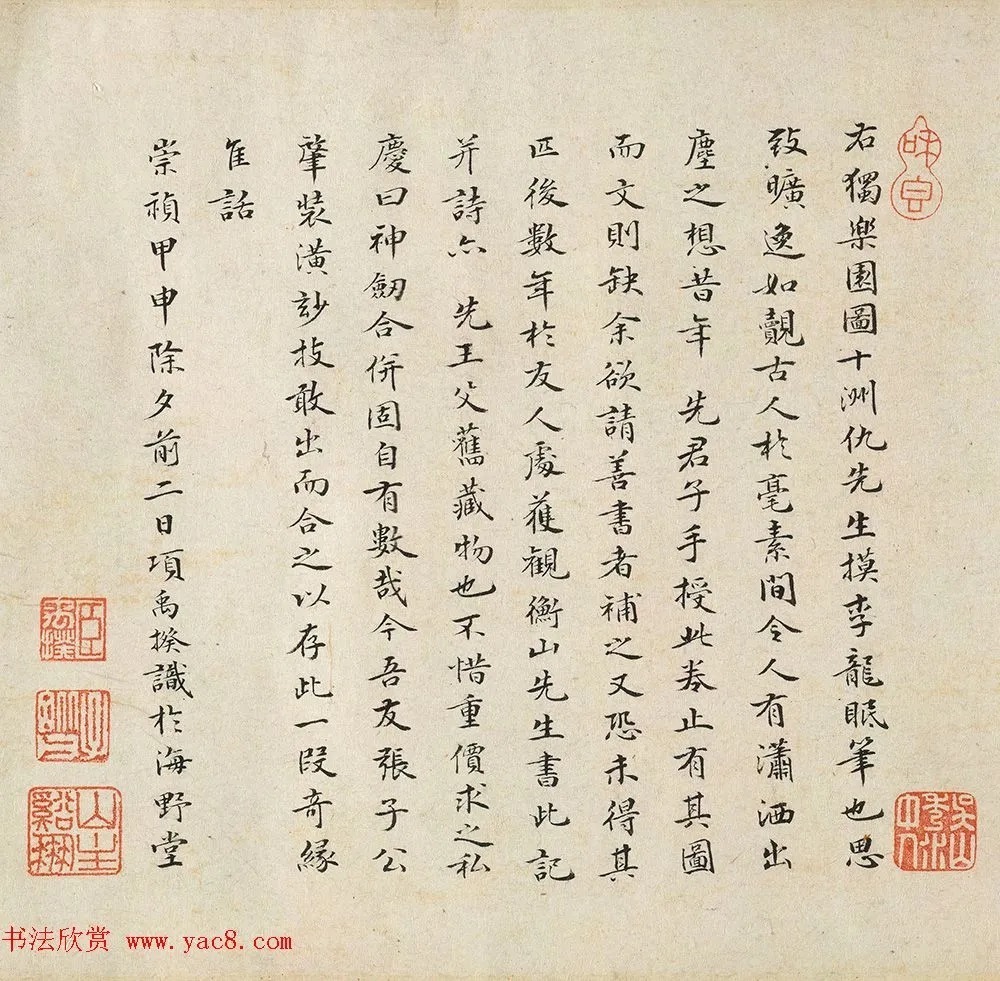 右獨樂園圖十洲仇先生摸李龍眠筆也思
致曠逸如覿古人於毫素間令人有瀟洒出
塵之想昔年 先君子手授此券止有其圖
而文則缺余欲請善書者補之又恐未得其
匹後數年於友人處獲観衡山先生書此記
并詩亦 先王父舊藏物也不惜重價求之私
慶曰神劒合併固自有數哉今吾友張子公
肇裝潢玅技敢出而合之以存此一段奇緣
隹話
崇禎甲申除夕前二日項禹揆識於海野堂
书法欣赏 www.yac8.com